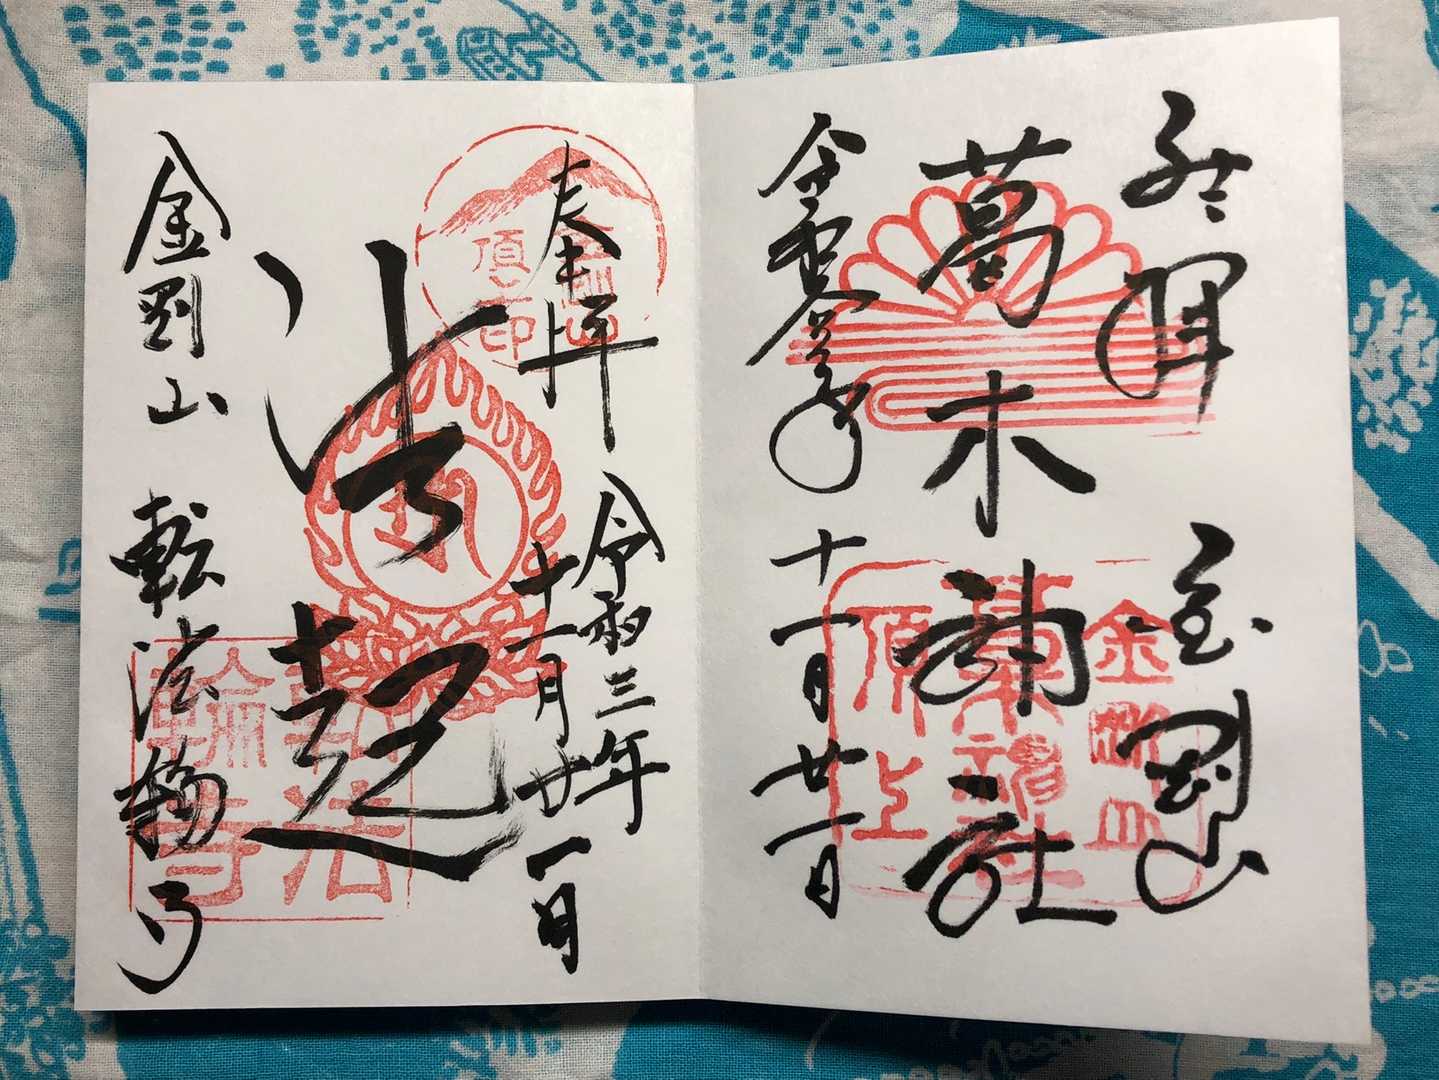 登拝 金剛山
葛木神社
令和参年 十一月廿一日
金剛山
葛木神社
頂上
奉拝 令和三年
十一月廿一日
法起
金剛山 転法輪寺
金剛山
頂印
転法
輪寺